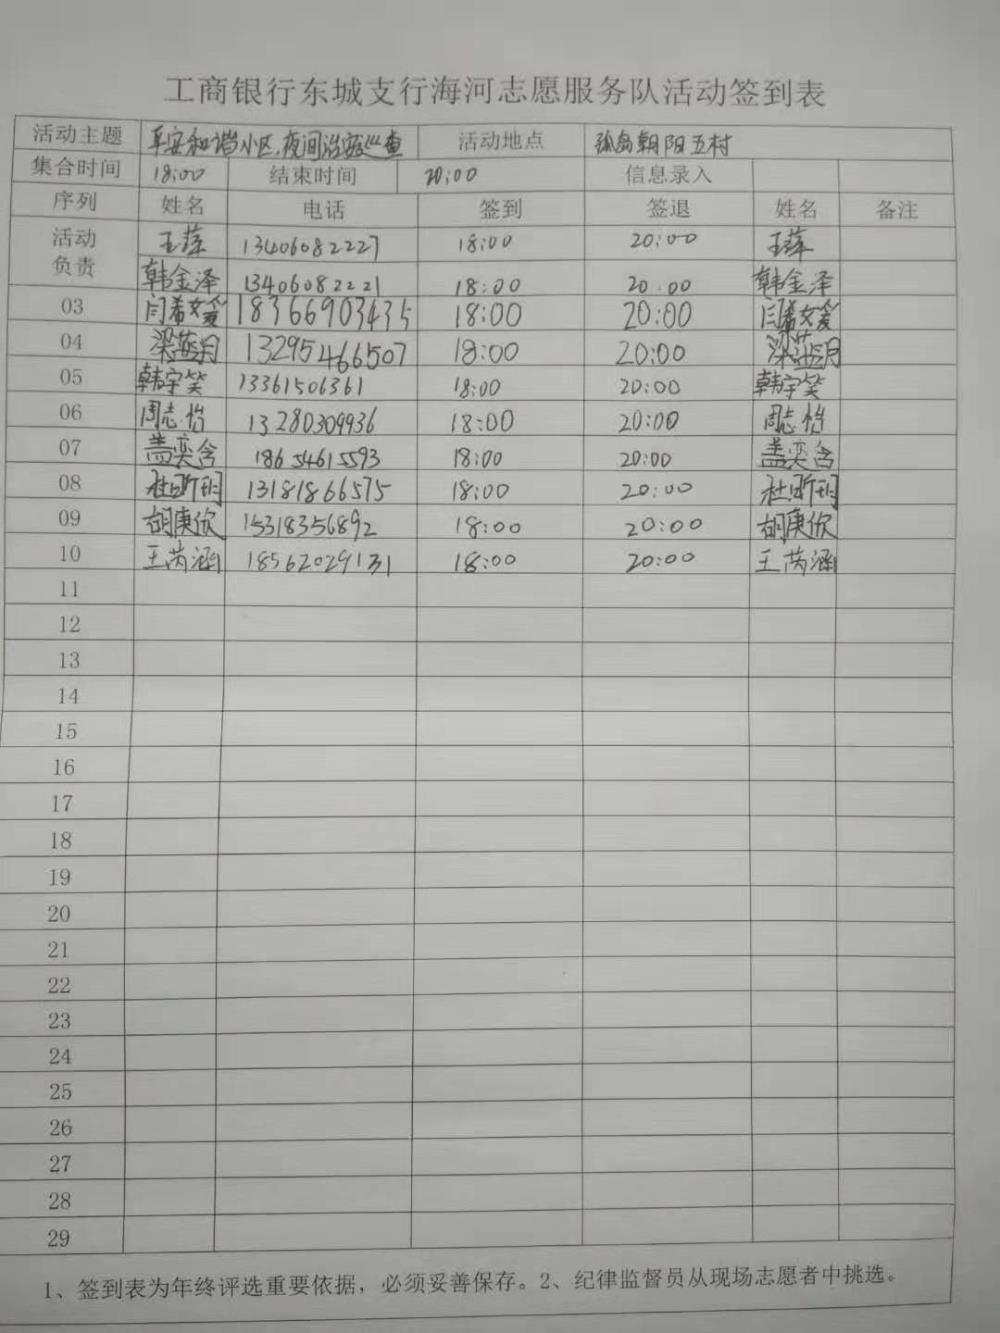 工商银行东城支行海河志愿服务队活动签到表
活动主题 平安和谐小区,夜间治安巡查 活动地点 孤岛朝阳五村
集合时间 18:00 结束时间 20:00 信息录入
序列 姓名 电话 签到 签退 姓名 备注
活动负责 王萍 13406082227 18:00 20:00 王萍
韩金泽 13406082221 18:00 20:00 韩金泽
03 闫希文爱 18366903435 18:00 20:00 闫希文爱
04 梁蓝月 13295466507 18:00 20:00 梁蓝月
05 韩宇笑 13361506361 18:00 20:00 韩宇笑
06 周志怡 13280309936 18:00 20:00 周志怡
07 盖奕含 18654615593 18:00 20:00 盖奕含
08 杜昕玥 13181866575 18:00 20:00 杜昕玥
09 胡庚欣 15318356892 18:00 20:00 胡庚欣
10 王芮涵 18562029131 18:00 20:00 王芮涵
11
12
13
14
15
16
17
18
19
20
21
22
23
24
25
26
27
28
29
1、签到表为年终评选重要依据，必须妥善保存。2、纪律监督员从现场志愿者中挑选。